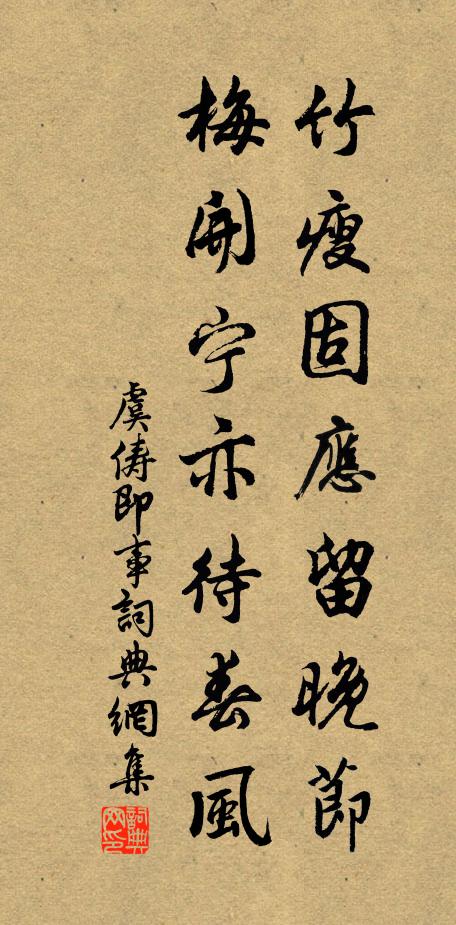 竹瘦固應留晚節
梅開宁亦待春風
虞儔即事詞典網集
詞典网印